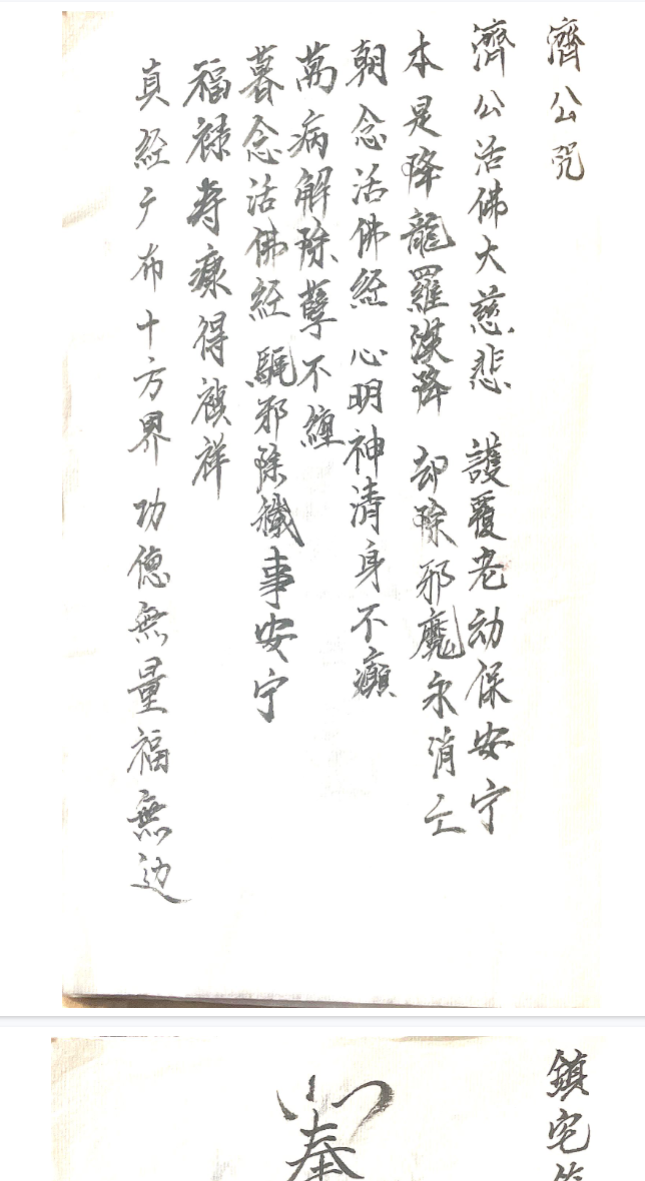 濟公咒
濟公活佛大慈悲 護覆老幼保安宁
本是降龍羅漢降 却除邪魔永消亡
朝念活佛經 心明神清身不癲
萬病解除孽不纏
暮念活佛經 驅邪除穢事安宁
福禄寿康得禎祥
真経广布十方界 功德無量福無边
鎮宅
奉